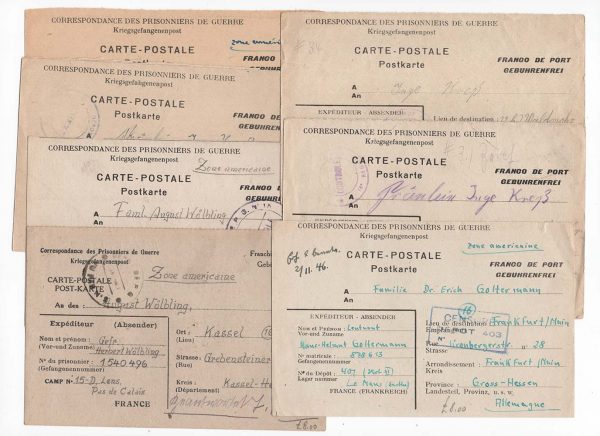 CORRESPONDANCE DES PRISONNIERS DE GUERRE
Kriegsgefangenenpost
CARTE-POSTALE
Zone américaine
FRANCO DE PORT
CORRESPONDANCE DES PRISONNIERS DE GUERRE
Kriegsgefangenenpost
CARTE-POSTALE
Postkarte
FRANCO DE PORT
GEBUHRENFREI
A
An
CORRESPONDANCE DES PRISONNIERS DE GUERRE
Kriegsgefangenenpost
Zone americaine
CARTE-POSTALE
Postkarte
FRAN
GEB
A
An
Faml. August Wölbling
Correspondance des Prisonniers de Guerre
Kriegsgefangenenpost
Franchi
Geb
CARTE-POSTALE
POST-KARTE
Zone americaine
An des :
August Wölbling
Expéditeur (Absender)
Nom et prénom :
Vor-und Zuname :
Gefr.
Herbert Wölbling
No du prisonnier
(Gefangenennummer)
1540.496
CAMP No 15-D. Lens.
Pas de Calais
FRANCE
Ort :
(Lieu)
Kassel (16
Strasse :
Grebensteiner
Kreis :
(Département)
Kassel-H
£8.00
CORRESPONDANCE DES PRISONNIERS DE GUERRE
Kriegsgefangenenpost
# 84
CARTE-POSTALE
Postkarte
FRANCO DE PORT
GEBUHRENFREI
A
An
Inge Kreß
EXPÉDITEUR - ABSENDER
Lieu de destination
CORRESPONDANCE DES PRISONNIERS DE GUERRE
Kriegsgefangenenpost
CARTE-POSTALE
Postkarte
FRANCO DE PORT
GEBUHRENFREI
A
An
Fräulein Inge Kreß
CORRESPONDANCE DES PRISONNIERS DE GUERRE
Kriegsgefangenenpost
zone americaine
2/11.46.
CARTE-POSTALE
Postkarte
FRANCO DE PORT
GEBUHRENFREI
A
An
Familie Dr. Erich Goltermann
EXPÉDITEUR - ABSENDER
Nom et Prénoms
Vor-und Zuname
Leutnant
Hans-Helmut Goltermann
No matricule :
Gefangenennummer
878613
No du Dépôt :
Lager nummer
401
Le Mans
FRANCE (FRANKREICH)
(16)
Lieu de destination :
Empfangsort
Frankfurt/Main
Rue
Strasse
28
CENS
DEPOT 403
Arrondissement :
Kreis
Frankfurt/Main
Province :
Landesteil, Provinz, u. s. w.
Gross-Hessen
Allemagne
£8.00